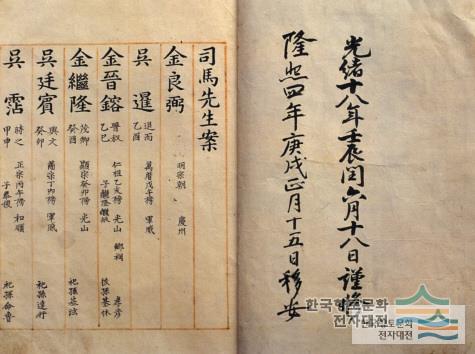 光緖十八年壬辰閏六月十八日謹修
隆熙四年庚戌正月十五日移安
司馬先生案
金良弼 明宗朝 慶州
吳暹 進而 乙酉 萬曆戊午榜 軍威
金晉鎔 晉叔 乙巳 仁祖乙亥榜 光山 鄕祠
金繼隆 茂卿 癸酉 顯宗癸卯榜 光山 祀孫基泫
吳廷賓 興文 癸卯 肅宗丁卯榜 軍威 祀孫達行
吳霑 時之 甲申 正宗丙午榜 和順 祀孫命魯
한국향토문화
전자대전